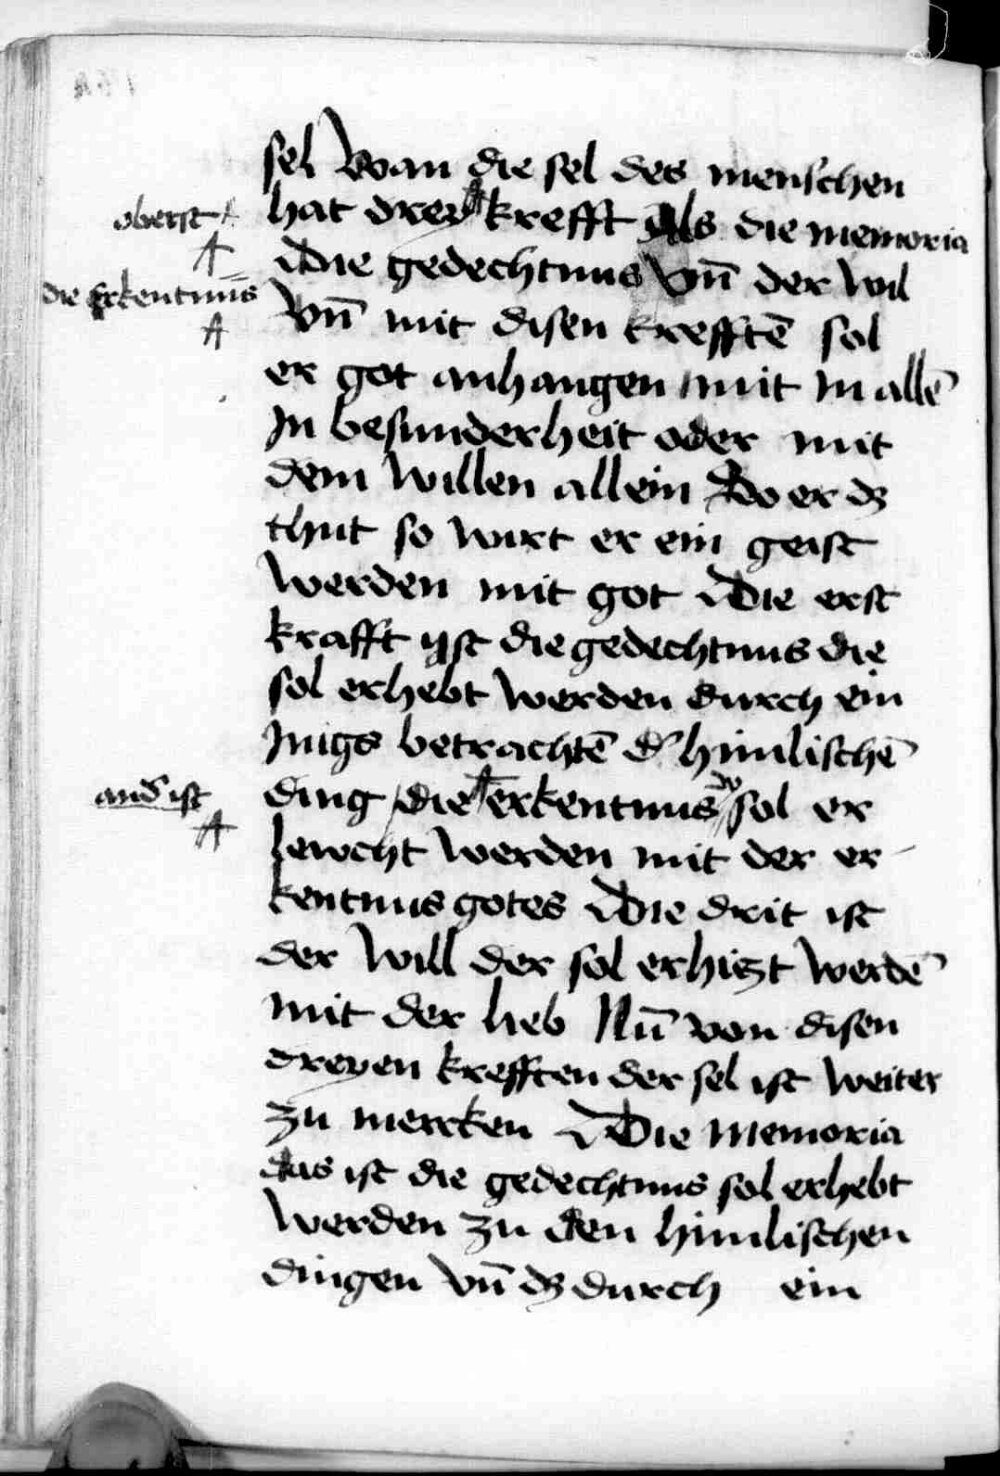 sel Wan die sel des menschen
oberst
hat drey krefft Als die memoria
Die gedechtnus Vn̄ der wil
die Erkentnus
Vn̄ mit disen krefftē sol
er got anhangen mit In allē
In besunderheit oder mit
dem willen allein So er dz
thut so wirt er ein geist
werden mit got Die erst
krafft yst die gedechtnus die
sol erhebt werden durch ein
Inigs betrachtē d' himlischē
and' ist
ding / die erkentnus sol er
lewcht werden mit der er-
kentnus gotes Die drit ist
der will der sol erhizt werdē
mit der lieb Nū von disen
dreyen krefften der sel ist weiter
zu mercken Die Memoria
das ist die gedechtnus sol erhebt
werden zu den himlischen
dingen vn̄ dz durch ein